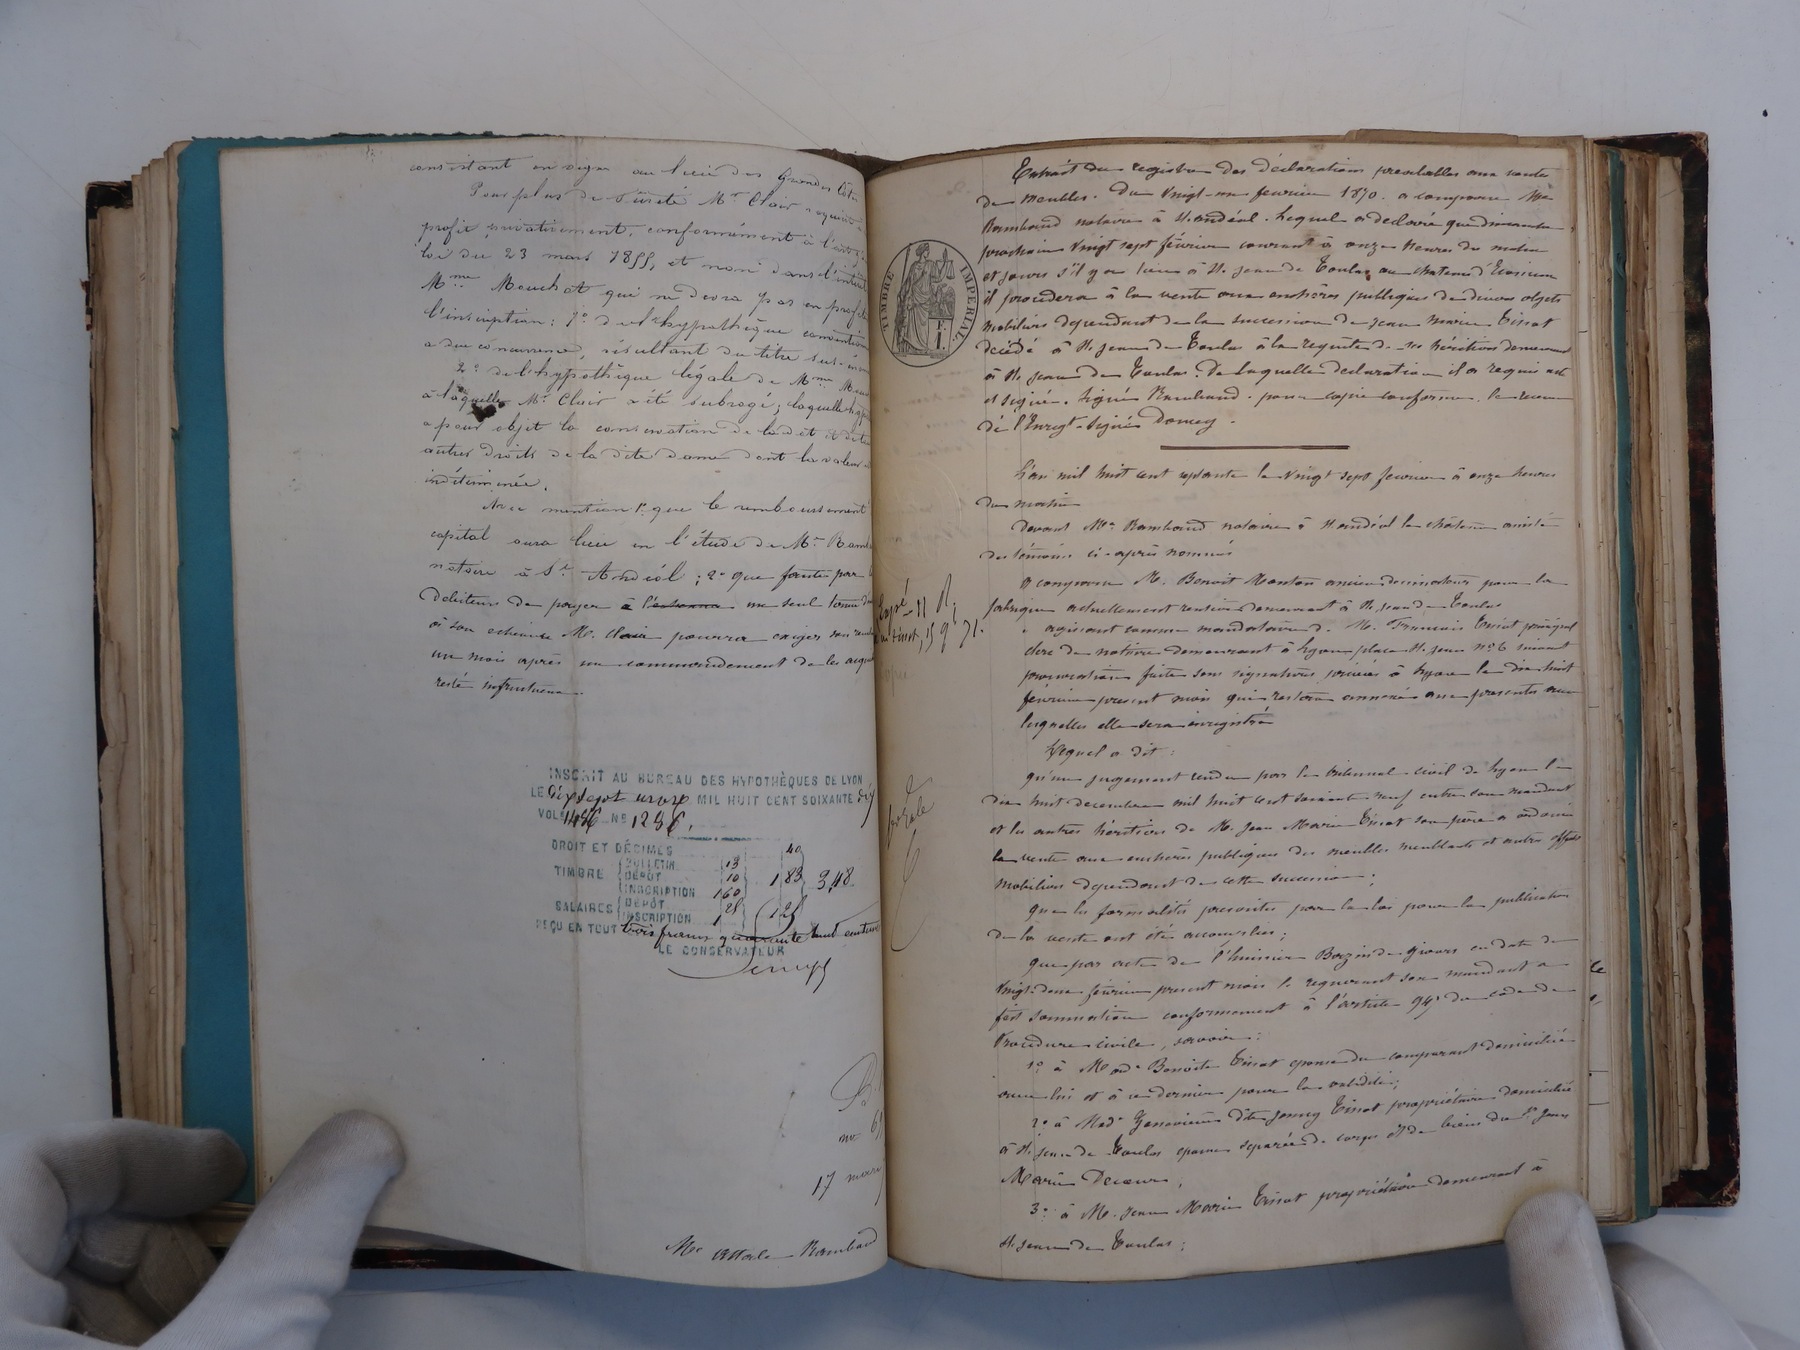 consistant en vigne au lieu des Grandes
Pour plus de sûreté Mr Clair requiert
profit privativement, conformément à l'art 9
loi du 23 mars 1855, et non dans l'intérêt
Mme Mouchet qui ne devra pas en profiter
l'inscription: 1o de l'hypothèque convention
a due concurrence, résultant du titre sus-énon
2o de l'hypothèque légale de Mme Mou
à laquelle Mr Clair a été subrogé; laquelle hypo
a pour objet la conservation de la dot et de tou
autres droits de la dite dame dont la valeur est
indéterminée.
Avec mention 1o que le remboursement
capital aura lieu en l'étude de Me Ramb
notaire à St Andéol; 2o que faute par
débiteurs de payer un seul terme
à son échéance Mr Clair pourra exiger son remb
un mois après un commandement de les acqui
resté infructueux.
INSCRIT AU BUREAU DES HYPOTHÈQUES DE LYON
LE dix sept mars MIL HUIT CENT SOIXANTE dix
VOL 1486 No 1286.
DROIT ET DÉCIMES 40
TIMBRE BULLETIN 13
DÉPÔT 10 1 83 3,48
INSCRIPTION 1 60
SALAIRES DÉPÔT 25 1 25
INSCRIPTION 1
REÇU EN TOUT trois francs quarante huit centimes
LE CONSERVATEUR
17 mars
Me Rambaud
TIMBRE IMPERIAL
1 F.
Extrait du registre des déclarations préalables aux ventes
de meubles. Du Vingt-un février 1870. a comparu Me
Rambaud notaire à St andéol. Lequel a déclaré que dimanche
prochain Vingt sept février courant à onze heures du matin
et jours s'il y a lieu à St Jean de Toulas au chateau
il procèdera à la vente aux enchères publiques de divers objets
mobiliers dépendant de la succession de Jean Marie Tissot
décédé à St Jean de Toulas à la requête de ses héritiers demeurant
à St Jean de Toulas. De laquelle déclaration il a requis acte
et signé. Signé Rambaud. pour copie conforme. le receveur
de l'Enregt. Signé
L'an mil huit cent septante le Vingt sept février à onze heures
du matin
Devant Me Rambaud notaire à St andéol le château assisté
des témoins ci-après nommés
A comparu M. Benoit ancien dessinateur pour la
fabrique actuellement rentier demeurant à St Jean de Toulas
agissant comme mandataire de M. François Tissot principal
clerc de notaire demeurant à Lyon place St Jean No 6 suivant
procuration faite sous signatures privées à Lyon le dix huit
février présent mois qui restera annexée aux présentes avec
lesquelles elle sera enregistrée
Lequel a dit:
qu'un jugement rendu par le tribunal civil de Lyon le
dix huit décembre mil huit cent soixante neuf entre son mandant
et les autres héritiers de M. Jean Marie Tissot son père a ordonné
la vente aux enchères publiques des meubles meublants et autres effets
mobiliers dépendant de cette succession;
que les formalités prescrites par la loi pour la publication
de la vente ont été accomplies;
que par acte de l'huissier de Givors en date du
Vingt deux février présent mois le requérant son mandant a
fait sommation conformément à l'article 947 du code de
Procédure civile, savoir:
1o à Made Benoite Tissot épouse du comparant domiciliée
avec lui et à ce dernier pour la validité;
2o à Made Geneviève dite Jenny Tissot propriétaire domiciliée
à St Jean de Toulas épouse séparée de corps et de biens du Sr Jean
Marie
3o à M. Jean Marie Tissot propriétaire demeurant à
St Jean de Toulas;